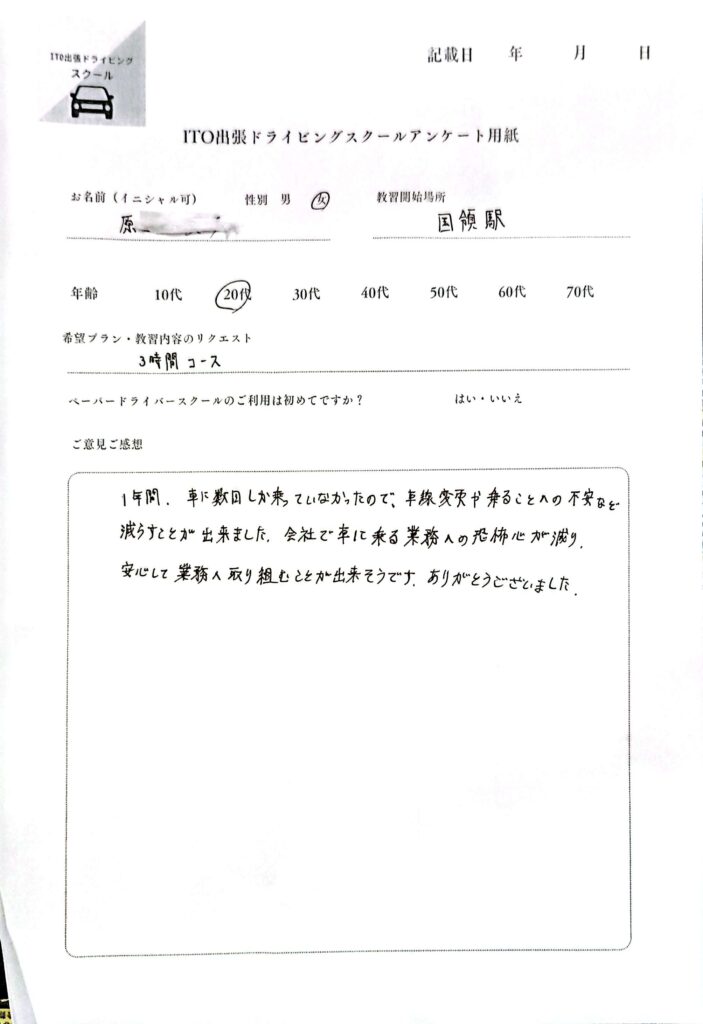 ITO出張ドライビング
スクール
記載日 年 月 日
ITO出張ドライビングスクールアンケート用紙
お名前（イニシャル可） 性別 男 女 教習開始場所
原
国領駅
年齢 10代 20代 30代 40代 50代 60代 70代
希望プラン・教習内容のリクエスト
3時間コース
ペーパードライバースクールのご利用は初めてですか？ はい・いいえ
ご意見ご感想
1年間、車に数回しか乗っていなかったので、車線変更や乗ることへの不安など
減らすことが出来ました。会社で車に乗る業務への恐怖心が減り、
安心して業務へ取り組むことが出来そうです。ありがとうございました。